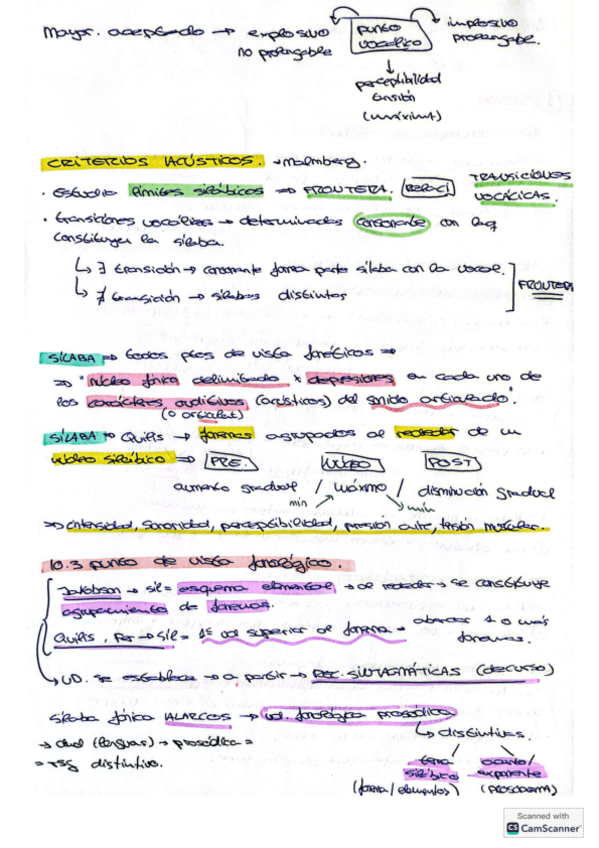 Mayor. aceptado → explosivo
no prolongable
punto
vocálico
implosivo
prolongable.
perceptibilidad
tensión
(máxima)
CRITERIOS ACÚSTICOS. → Malmberg.
· Estudio límites silábicos ⇒ FRONTERA.
TRANSICIONES
VOCÁLICAS.
· transiciones vocálicas → determinadas consonante con la q
constituyen la sílaba.
↳ ∃ transición → consonante forma parte sílaba con la vocal.
↳ ∄ transición → sílabas distintas
FRONTERA
SÍLABA ⇒ todos ptos de vista fonéticos ⇒
⇒ "Núcleo fónico delimitado x depresiones en cada uno de
los caracteres auditivos (acústicos) del sonido articulado".
(o articulat)
SÍLABA → Quilis → fonemas agrupados al rededor de un
núcleo silábico ⇒ PRE. NÚCLEO POST
aumento gradual / máximo / disminución gradual
min min
⇒ intensidad, sonoridad, perceptibilidad, presión, tensión muscular.
10.3 punto de vista fonológico.
Jakobson → síl = esquema elemental → al rededor → se constituye
agrupamiento de fonemas.
Quilis, → síl = 1ª ud superior al fonema = abarcar 1 o más
fonemas.
↳ UD. se establece → a partir → REL. SINTAGMÁTICAS (decurso)
sílaba fónica ALARCOS → ud. fonológica prosódica
→ (lenguas) → prosódica = ↳ distintivas.
= rsg distintivo.
tema
silábico
acento/
exponente
(fonema/elementos) (PROSODEMA)
Scanned with
CS CamScanner